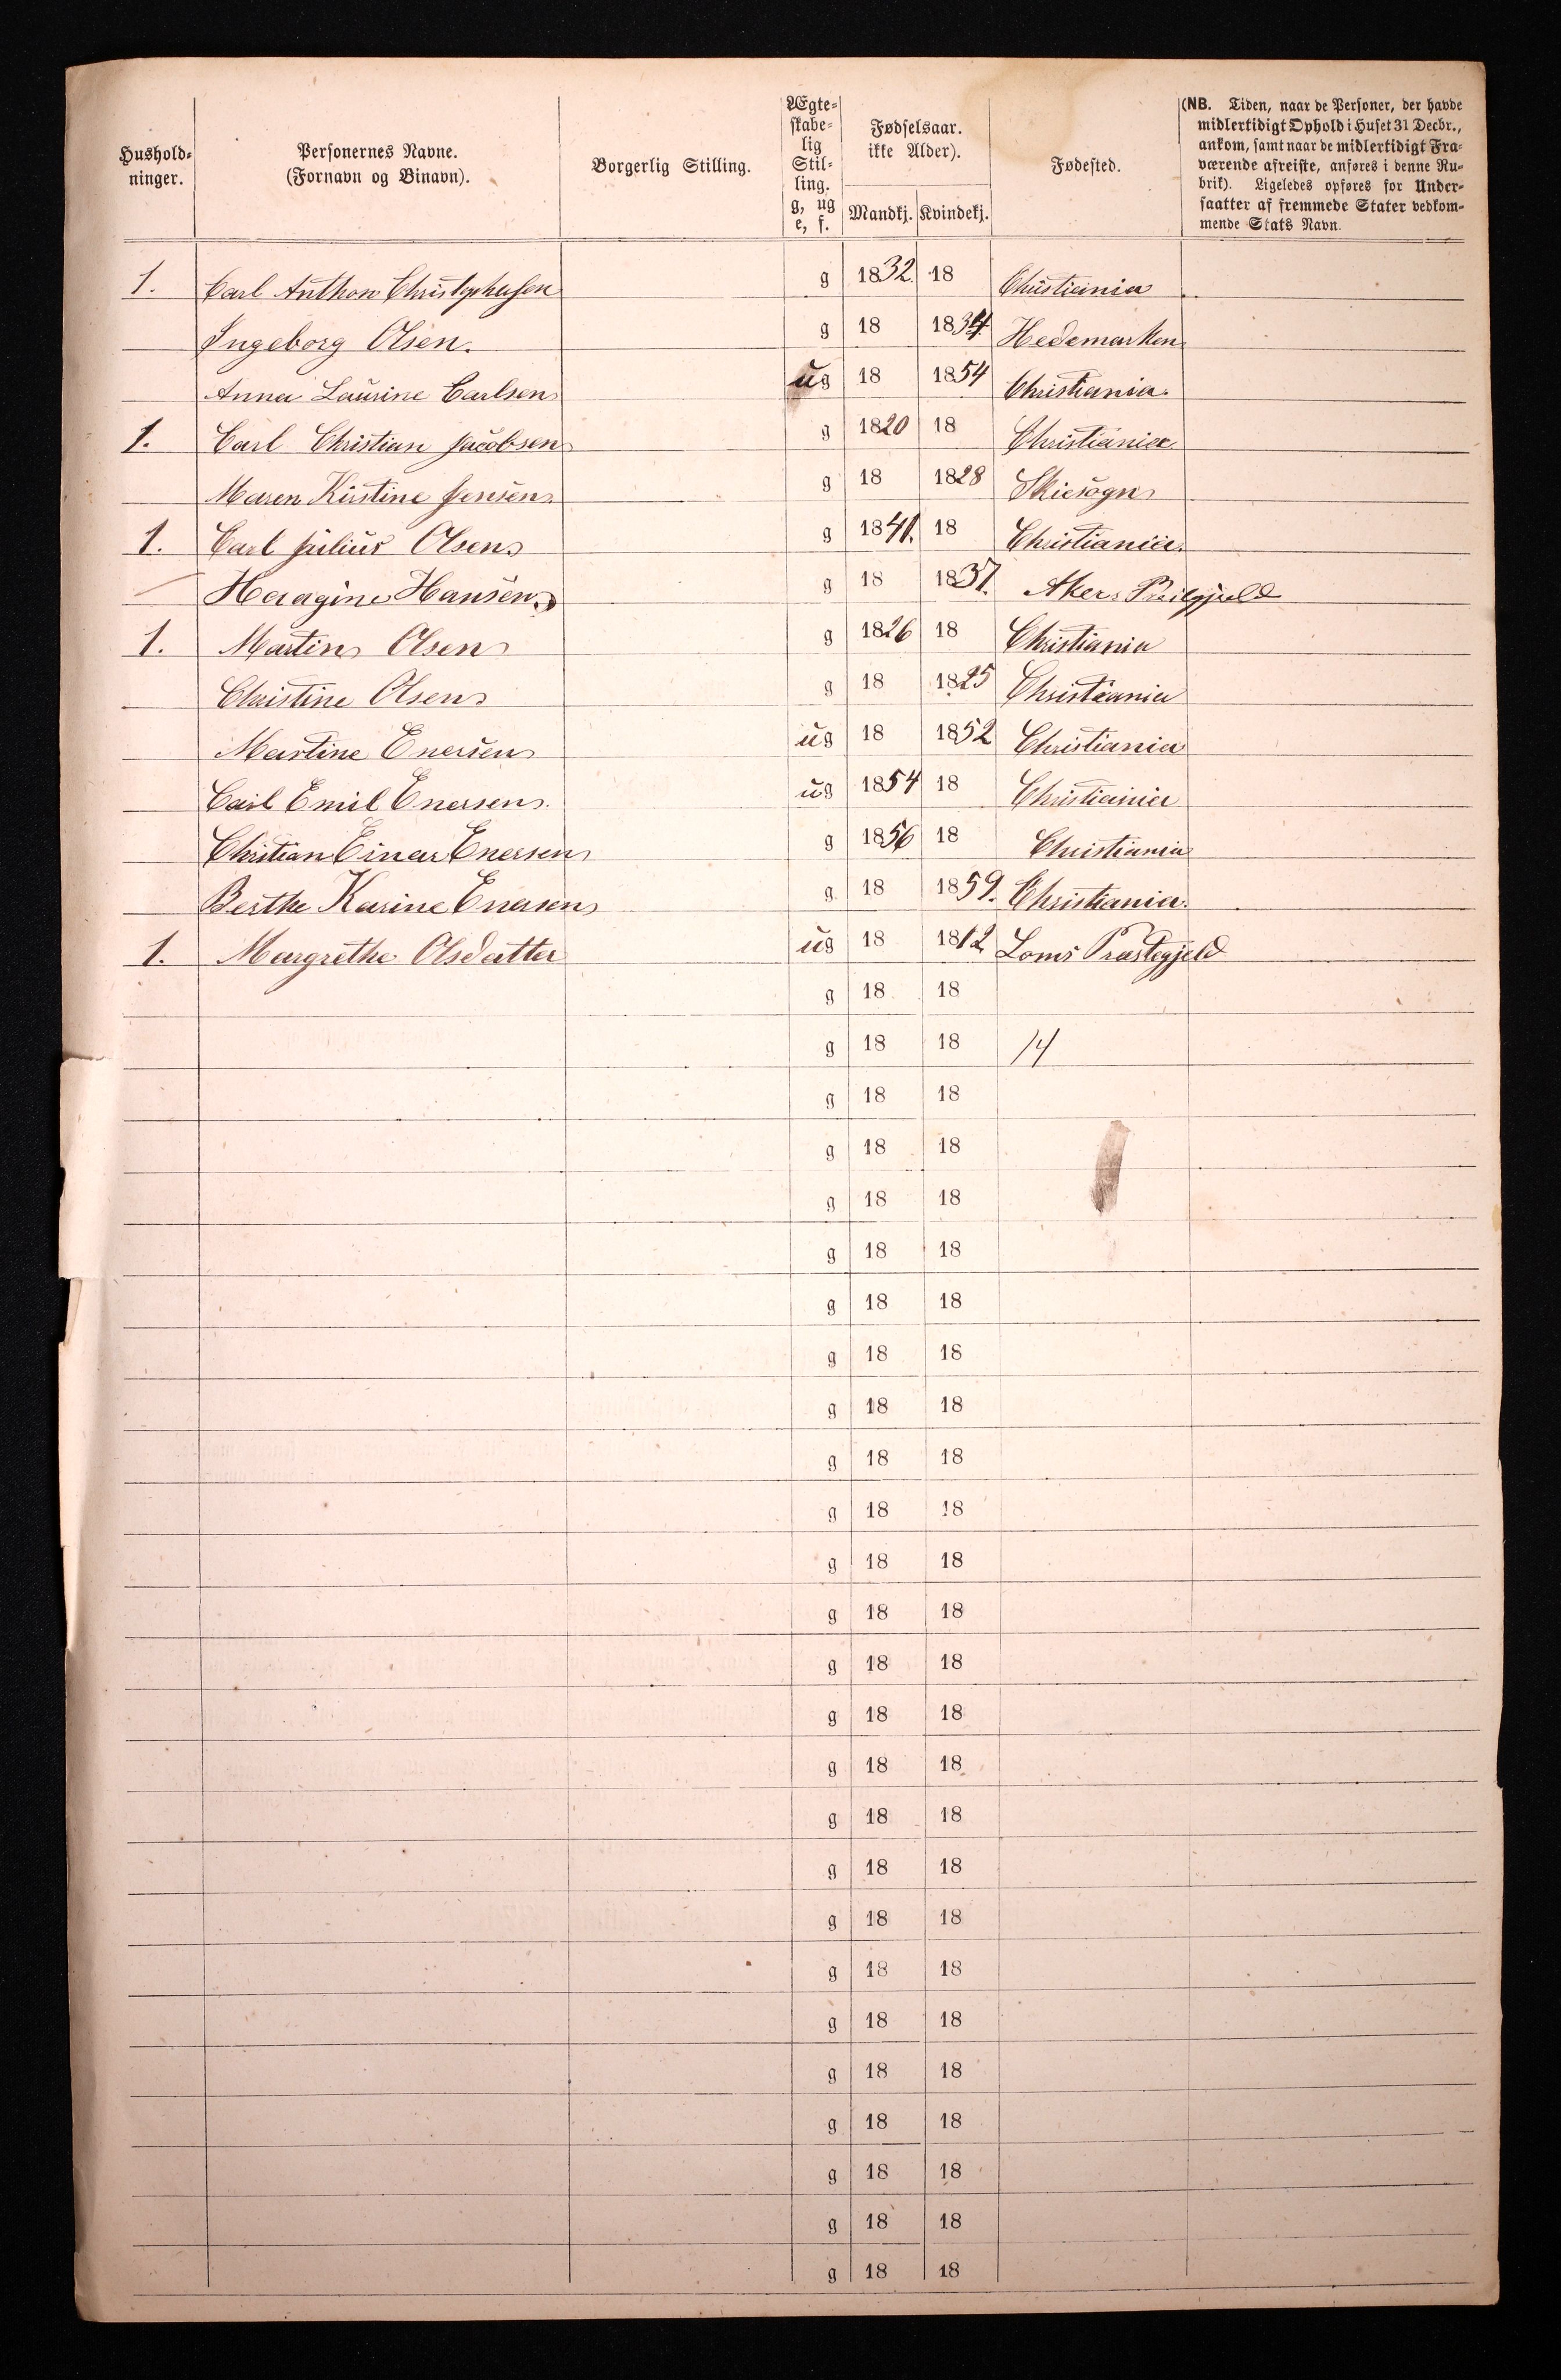 Hushold-
ninger.
Personernes Navne.
(Fornavn og Binavn).
Borgerlig Stilling.
Ægte-
skabe-
lig
Stil-
ling.
g, ug
e, f.
Fødselsaar.
ikke Alder).
Mandkj. Kvindekj.
Fødested.
(NB. Tiden, naar de Personer, der havde
midlertidigt Ophold i Huset 31 Decbr.,
ankom, samt naar de midlertidigt Fra-
værende afreiste, anføres i denne Ru-
brik). Ligeledes opføres for Under-
saatter af fremmede Stater vedkom-
mende Stats Navn.
1. Carl Anthon Christophersen g 1832. 18 Christiania
Ingeborg Olsen. g 18 1834 Hedemarken
Anna Laurine Carlsen ug 18 1854 Christiania.
1. Carl Christian Jacobsen g 1820 18 Christiania
Maren Kirstine Jensen g 18 1828 Skiesogn
1. Carl Julius Olsen g 1841. 18 Christiania.
Hansen g 18 1837. Akers
1. Martin Olsen g 1826 18 Christiania
Christine Olsen g 18 1825 Christiania
Martine Enersen ug 18 1852 Christiania
Carl Emil Enersen. ug 1854 18 Christiania
Christian Einar Enersen g 1856 18 Christiania
Berthe Karine Enersen g 18 1859. Christiania.
1. Margrethe Olsdatter ug 18 1812 Loms Præstegjeld
g 18 18
g 18 18 14
g 18 18
g 18 18
g 18 18
g 18 18
g 18 18
g 18 18
g 18 18
g 18 18
g 18 18
g 18 18
g 18 18
g 18 18
g 18 18
g 18 18
g 18 18
g 18 18
g 18 18
g 18 18
g 18 18
g 18 18
g 18 18
g 18 18
g 18 18
g 18 18